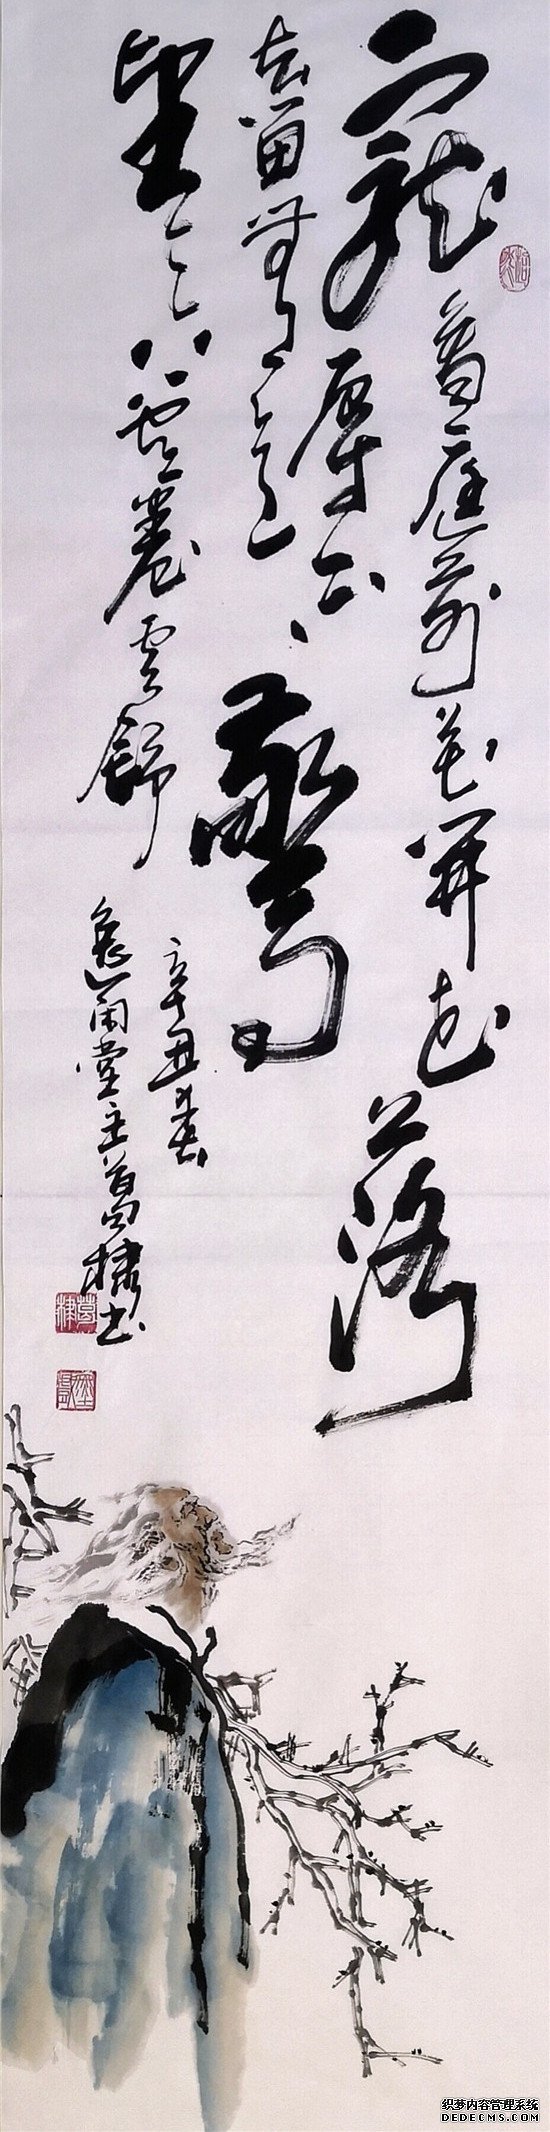 寵辱不驚
看庭前花開花落
去留無意
望天雲卷雲舒
辛丑春
逸閑堂主葛棣书
织梦内容管理系统
DEDECMS.COM